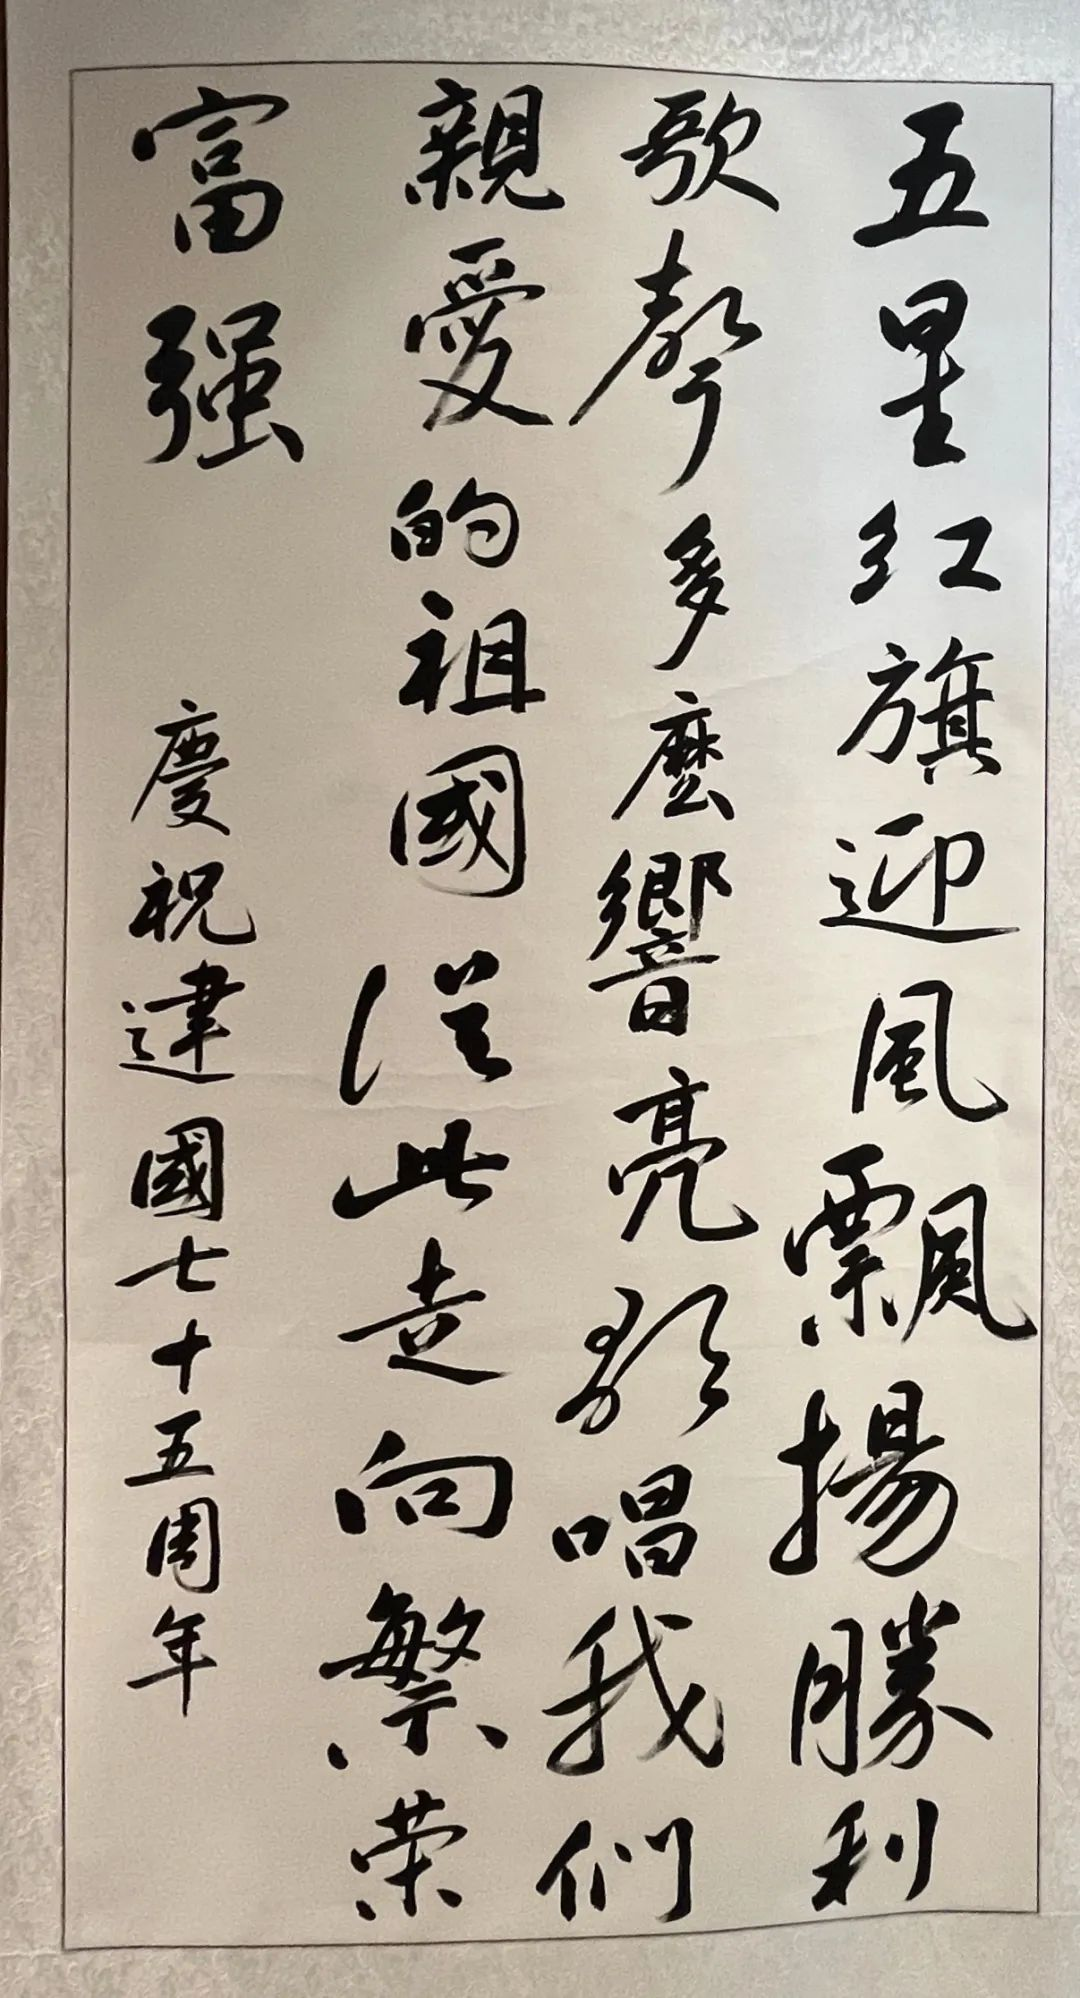 五星红旗迎風飄揚勝利
歌聲多麼響亮歌唱我們
親愛的祖國從此走向繁荣
富强
慶祝建國七十五周年